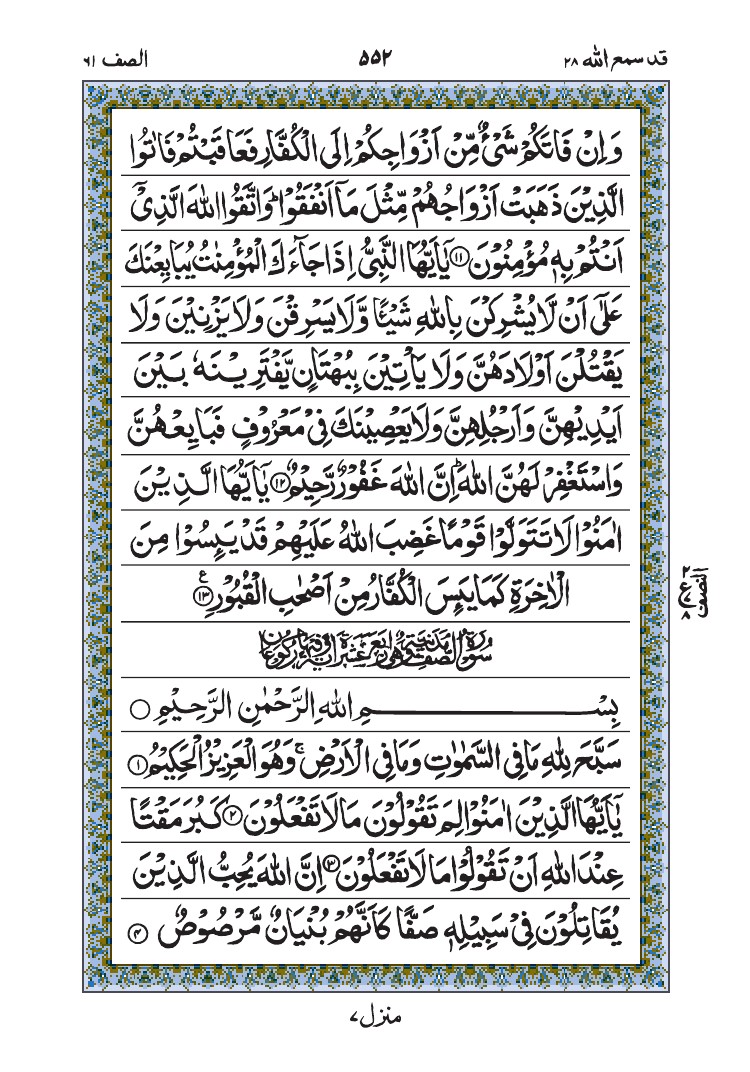 قد سمع الله ۲۸
۵۵۲
الصف ۶۱
وَاِنْ فَاتَكُمْ شَیْءٌ مِّنْ اَزْوَاجِكُمْ اِلَی الْكُفَّارِ فَعَاقَبْتُمْ فَاٰتُوا
الَّذِیْنَ ذَهَبَتْ اَزْوَاجُهُمْ مِّثْلَ مَاۤ اَنْفَقُوْا ؕ وَاتَّقُوا اللّٰهَ الَّذِیْۤ
اَنْتُمْ بِهٖ مُؤْمِنُوْنَ ﴿۱۱﴾ یٰۤاَیُّهَا النَّبِیُّ اِذَا جَآءَكَ الْمُؤْمِنٰتُ یُبَایِعْنَكَ
عَلٰۤی اَنْ لَّا یُشْرِكْنَ بِاللّٰهِ شَیْـًٔا وَّلَا یَسْرِقْنَ وَلَا یَزْنِیْنَ وَلَا
یَقْتُلْنَ اَوْلَادَهُنَّ وَلَا یَاْتِیْنَ بِبُهْتَانٍ یَّفْتَرِیْنَهٗ بَیْنَ
اَیْدِیْهِنَّ وَاَرْجُلِهِنَّ وَلَا یَعْصِیْنَكَ فِیْ مَعْرُوْفٍ فَبَایِعْهُنَّ
وَاسْتَغْفِرْ لَهُنَّ اللّٰهَ ؕ اِنَّ اللّٰهَ غَفُوْرٌ رَّحِیْمٌ ﴿۱۲﴾ یٰۤاَیُّهَا الَّذِیْنَ
اٰمَنُوْا لَا تَتَوَلَّوْا قَوْمًا غَضِبَ اللّٰهُ عَلَیْهِمْ قَدْ یَىِٕسُوْا مِنَ
الْاٰخِرَةِ كَمَا یَىِٕسَ الْكُفَّارُ مِنْ اَصْحٰبِ الْقُبُوْرِ ﴿۱۳﴾ ع
۲
ع
۸
النصف
سُوْرَةُ الصَّفِّ مَدَنِیَّةٌ وَّهِیَ اَرْبَعَ عَشْرَةَ اٰیَةً وَّفِیْهَا رُكُوْعَانِ
بِسْمِ اللّٰهِ الرَّحْمٰنِ الرَّحِیْمِ
سَبَّحَ لِلّٰهِ مَا فِی السَّمٰوٰتِ وَمَا فِی الْاَرْضِ ۚ وَهُوَ الْعَزِیْزُ الْحَكِیْمُ ﴿۱﴾
یٰۤاَیُّهَا الَّذِیْنَ اٰمَنُوْا لِمَ تَقُوْلُوْنَ مَا لَا تَفْعَلُوْنَ ﴿۲﴾ كَبُرَ مَقْتًا
عِنْدَ اللّٰهِ اَنْ تَقُوْلُوْا مَا لَا تَفْعَلُوْنَ ﴿۳﴾ اِنَّ اللّٰهَ یُحِبُّ الَّذِیْنَ
یُقَاتِلُوْنَ فِیْ سَبِیْلِهٖ صَفًّا كَاَنَّهُمْ بُنْیَانٌ مَّرْصُوْصٌ ﴿۴﴾
منزل ۷